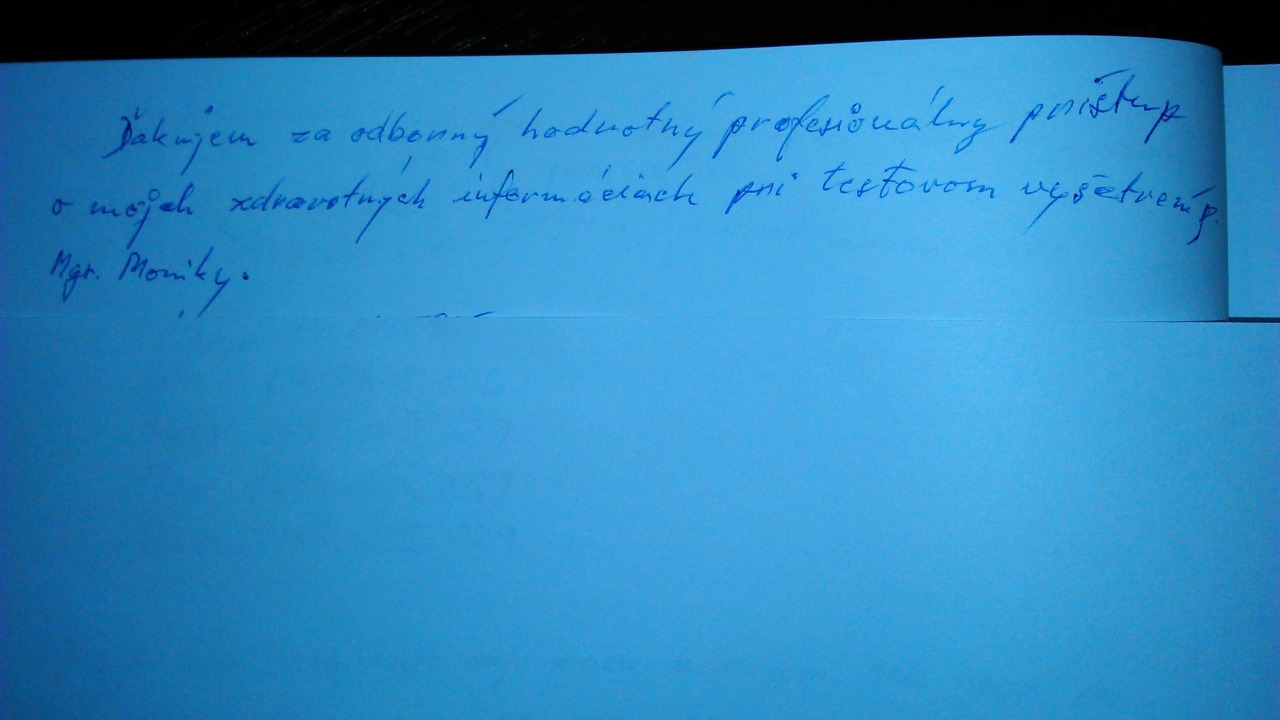 Ďakujem za odborný hodnotný profesionálny prístup
o mojich zdravotných informáciách pri testovom vyšetrení p.
Mgr. Moniky.